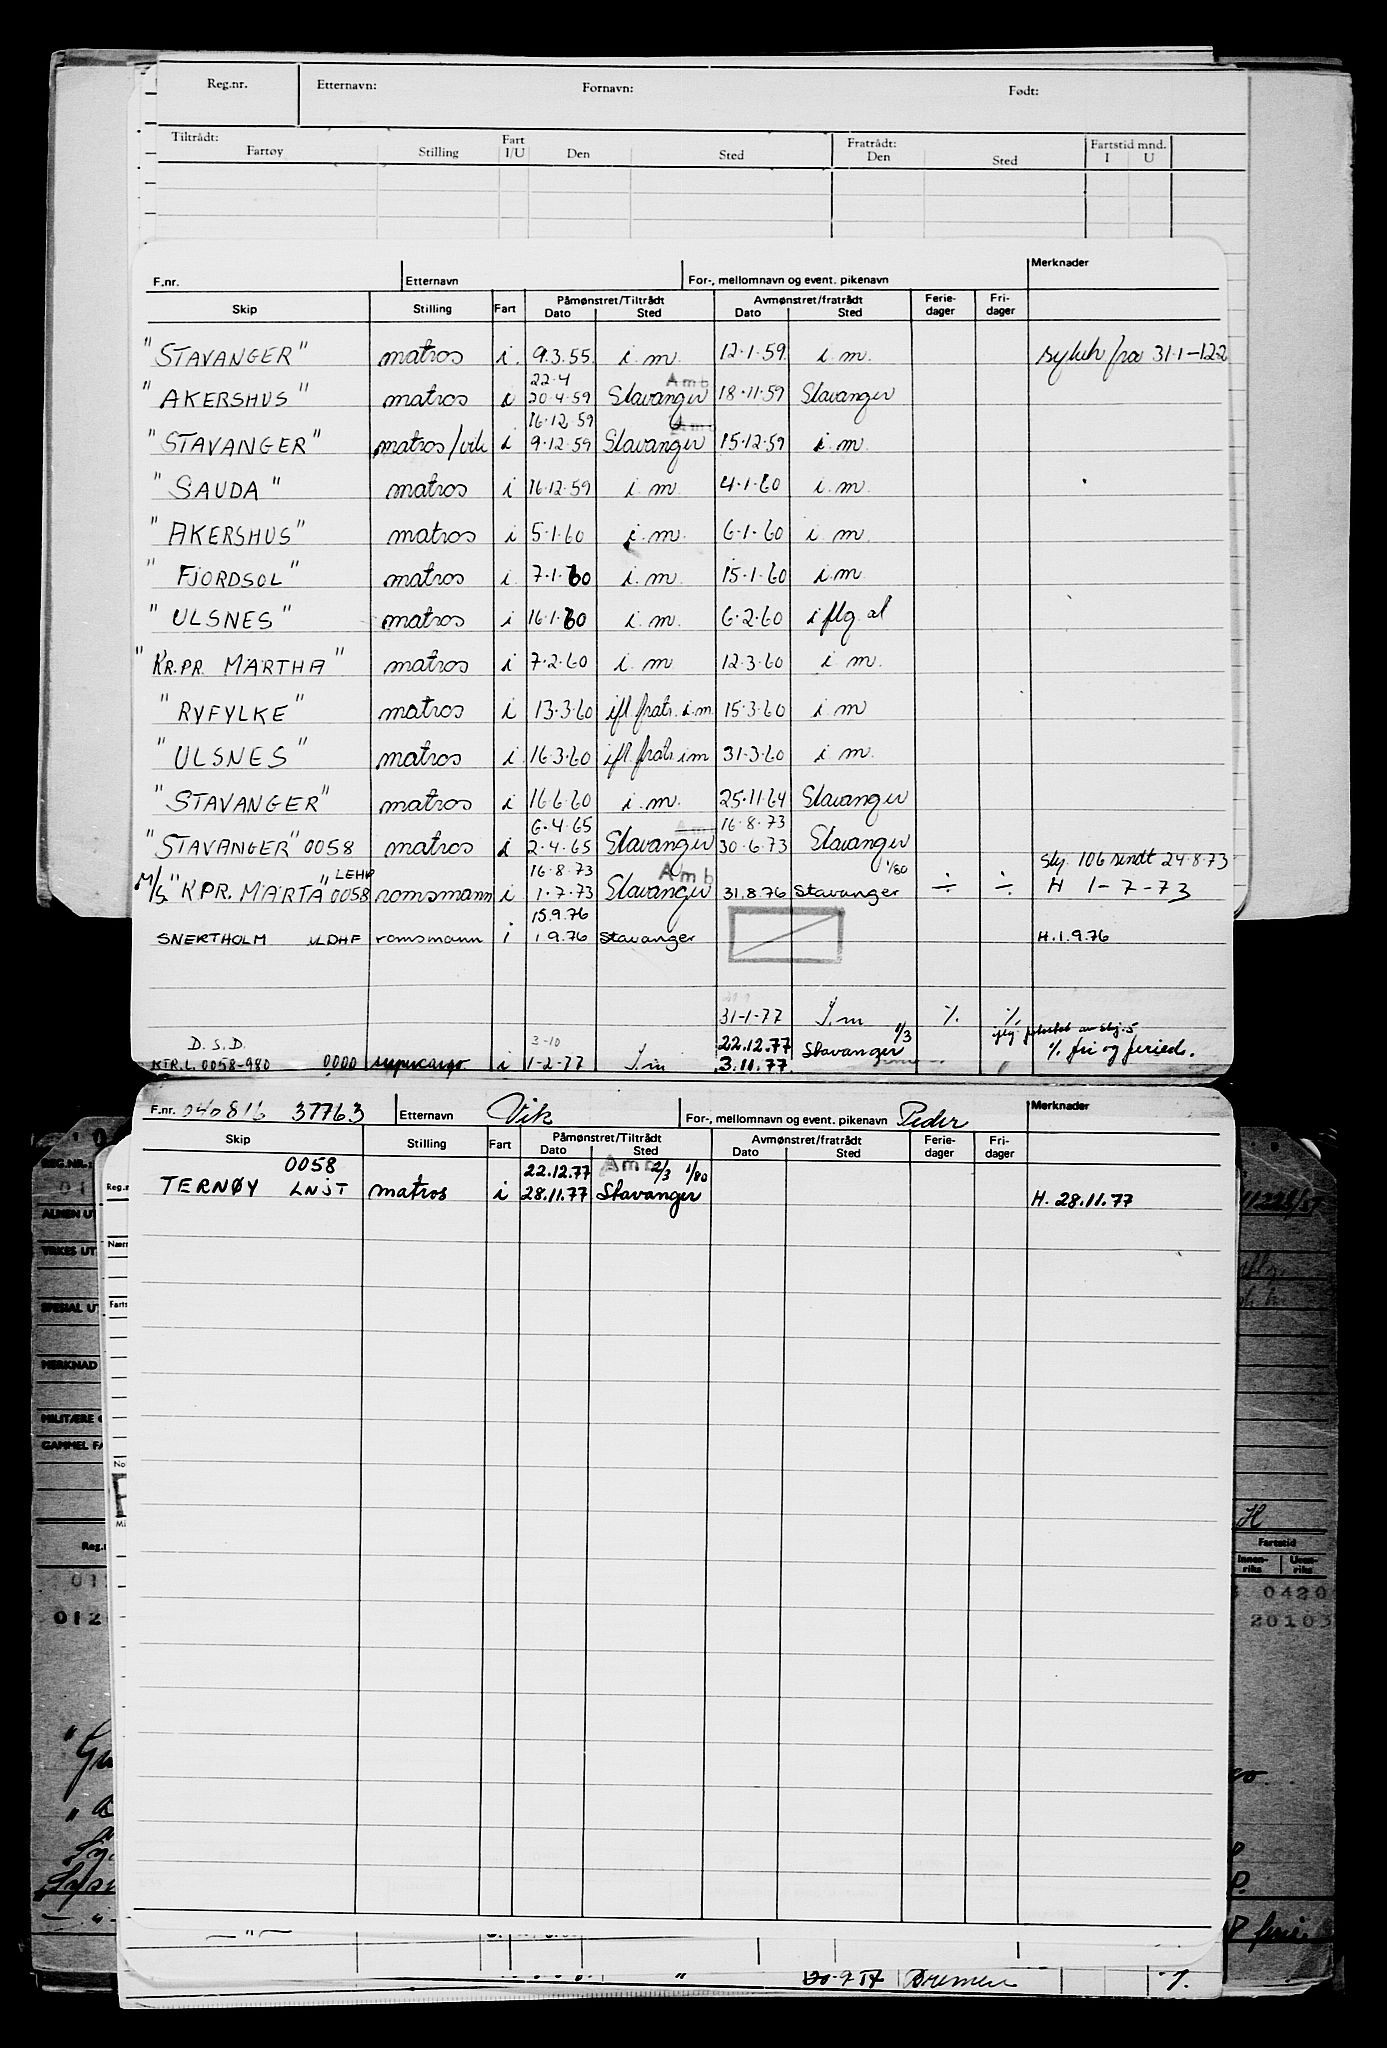 Reg.nr. Etternavn: Fornavn: Født:
Tiltrådt: Fratrådt: Fartstid mnd.
Fartøy Stilling Fart I/U Den Sted Den Sted I U
Merknader
F.nr. Etternavn For-, mellomnavn og event. pikenavn
Skip Stilling Fart Påmønstret/Tiltrådt Avmønstret/fratrådt Ferie-dager Fri-dager
Dato Sted Dato Sted
"STAVANGER" matros i. 9.3.55. i.m. 12.1.59. i.m. 31.1-12.2
22.4 Amb
"AKERSHUS" matros i 20.4.59 Stavanger 18.11.59 Stavanger
16.12.59 Amb
"STAVANGER" matros/vik i 9.12.59 Stavanger 15.12.59 i.m
"SAUDA" matros i 16.12.59 i.m. 4.1.60 i.m.
"AKERSHUS" matros i 5.1.60 i.m. 6.1.60 i m.
"FJORDSOL" matros i 7.1.60 i.m. 15.1.60 i.m
"ULSNES" matros i 16.1.60 i.m. 6.2.60 iflg. al
"KR.PR. MÄRTHA" matros i 7.2.60 i.m 12.3.60 i m.
"RYFYLKE" matros i 13.3.60 ifl. fratr. i.m 15.3.60 i.m
"ULSNES" matros i 16.3.60 ifl. fratr. i m 31.3.60 i m.
"STAVANGER" matros i 16.6.60 i.m. 25.11.64 Stavanger
6.4.65 Amb 16.8.73
"STAVANGER" 0058 matros i 2.4.65 Stavanger 30.6.73 Stavanger Skj. 106 sendt 24.8.73
LEHP 16.8.73 Amb 1/80
M/S "KPR. MÄRTA" 0058 romsmann i 1.7.73 Stavanger 31.8.76 Stavanger ÷ ÷ H 1-7-73
15.9.76
SNERTHOLM ULDHF romsmann i 1.9.76 Stavanger H.1.9.76
31-1-77 I.m % %
D.S.D. 3-10 22.12.77 1/3
KTR.L. 0058-980 0000 supercargo i 1-2-77 I.m 3.11.77 Stavanger % fri og feried.
F.nr. 040816 37763 Etternavn Vik For-, mellomnavn og event. pikenavn Peder Merknader
Skip Stilling Fart Påmønstret/Tiltrådt Avmønstret/fratrådt Ferie-dager Fri-dager
Dato Sted Dato Sted
0058 22.12.77 Amb 2/3 1/80
TERNØY LNJT matros i 28.11.77 Stavanger H. 28.11.77
REG.NR.:
ALMEN UT
VIRKES UT
SPESIAL UT
MERKNAD
MILITÆRE
GAMMEL FA
Reg.n
Nær
Farts
No
Mi
H
Fartstid
Innen-riks Uten-riks
0420
012 20103
P ferie
— " —
" 20.9.57 Bremen 7.